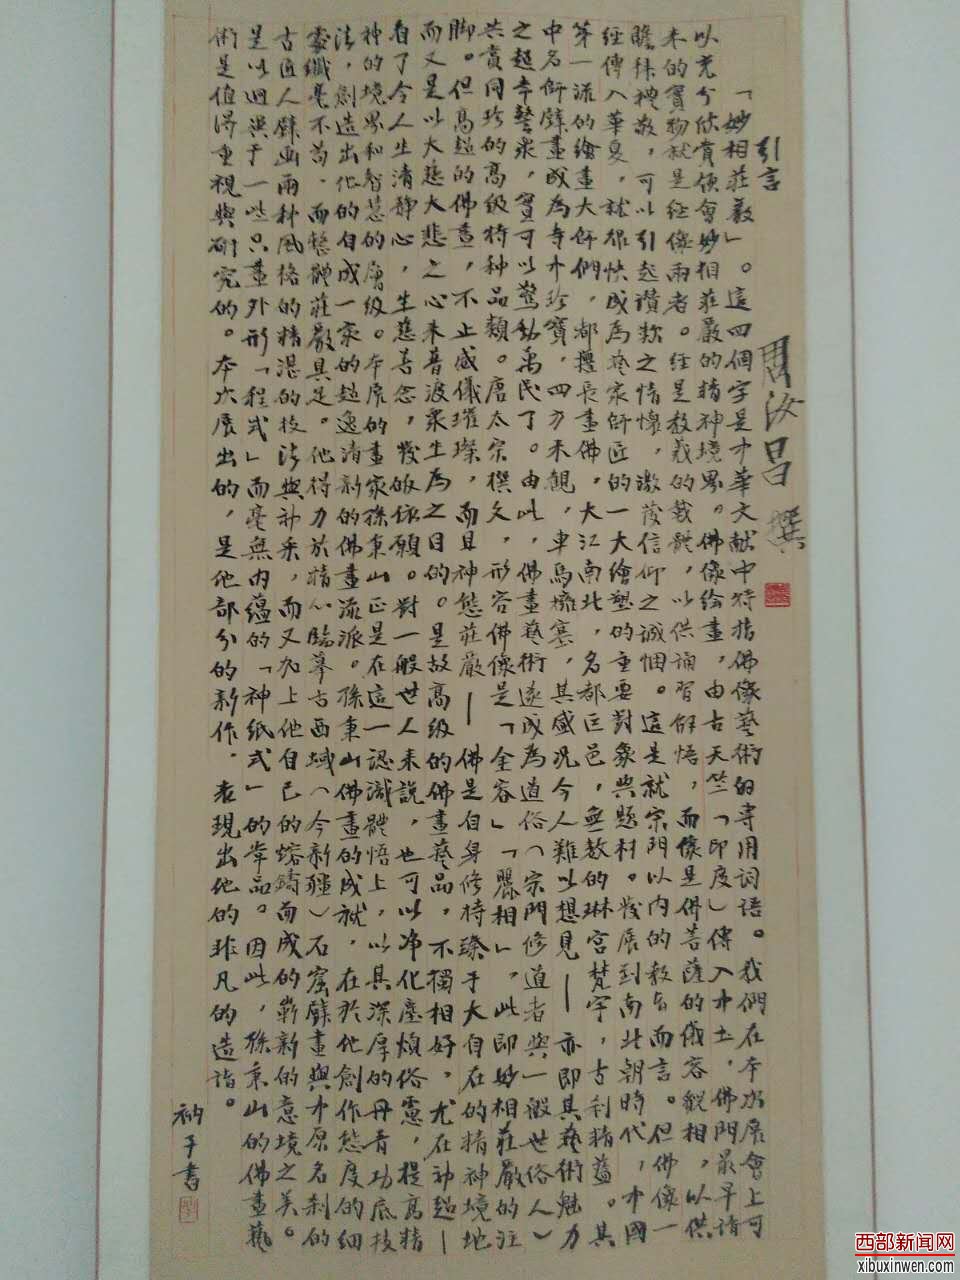 引言
周汝昌 撰
「妙相莊嚴」。這四個字是中華文獻中特指佛像藝術的專用詞語。我們在本次展會上可
以充分欣賞領會妙相莊嚴的精神境界。佛像繪畫,由古天竺「印度」傳入中土,佛門最早請
來的寶物就是經像兩者。經是教義的載體,以供誦習解悟,而像是佛菩薩的儀容觀相,以供
瞻拜禮敬,可以引起讚歎之情懷,激發信仰之誠悃。這是就宗門以內的教言而言。但佛像一
經傳入華夏,就很快成為藝家師匠的一大繪塑的重要對象與題材。發展到南北朝時代,中國
第一流的繪畫大師們,都擅長畫佛,大江南北,名都巨邑,無數的琳宮梵宇,古剎精藍。其
中名師壁畫成為寺中珍寶,四方來觀,車馬擁塞,其盛況今人難以想見——亦即其藝術魅力
之超奇警眾,實可以驚動萬民了。由此,佛畫藝術遂成為道俗(宗門修道者與一般世俗人)
共賞同珍的高級特種品類。唐太宗撰文,形容佛像是「全容」「麗相」,此即妙相莊嚴的注
腳。但高超的佛畫,不止威儀璀璨,而且神態莊嚴——佛是自身修持臻于大自在的精神境地
而又是以大慈大悲之心來普渡眾生為之目的。是故高級的佛畫藝品,不獨相好,尤在神超——
看了令人生清靜心,生慈善念,發皈依願。對一般世人來說,也可以淨化塵煩俗慮,提高精
神的境界和智慧的層級。本展的畫家孫秉山正是在這一認識體悟上,以其深厚的丹青功底技
法,創造出他的自成一家的超逸清新的佛畫流派。孫秉山佛畫的成就,在於他創作態度的細
密纖毫不苟,而整體莊嚴具足。他得力於精心臨摹古西域(今新疆)石窟壁畫與中原名剎的
古匠人壁画兩种風格的精湛的技法與神采,而又加上他自己的熔鑄而成的嶄新的意境之美。
是以迥異于一些只畫外形「程式」而毫無內蘊的「神紙式」的常品。因此,孫秉山的佛畫藝
術是值得重視與研究的。本次展出的,是他部分的新作,表現出他的非凡的造詣。
衲子書
西部新闻网
xibuxinwen.com